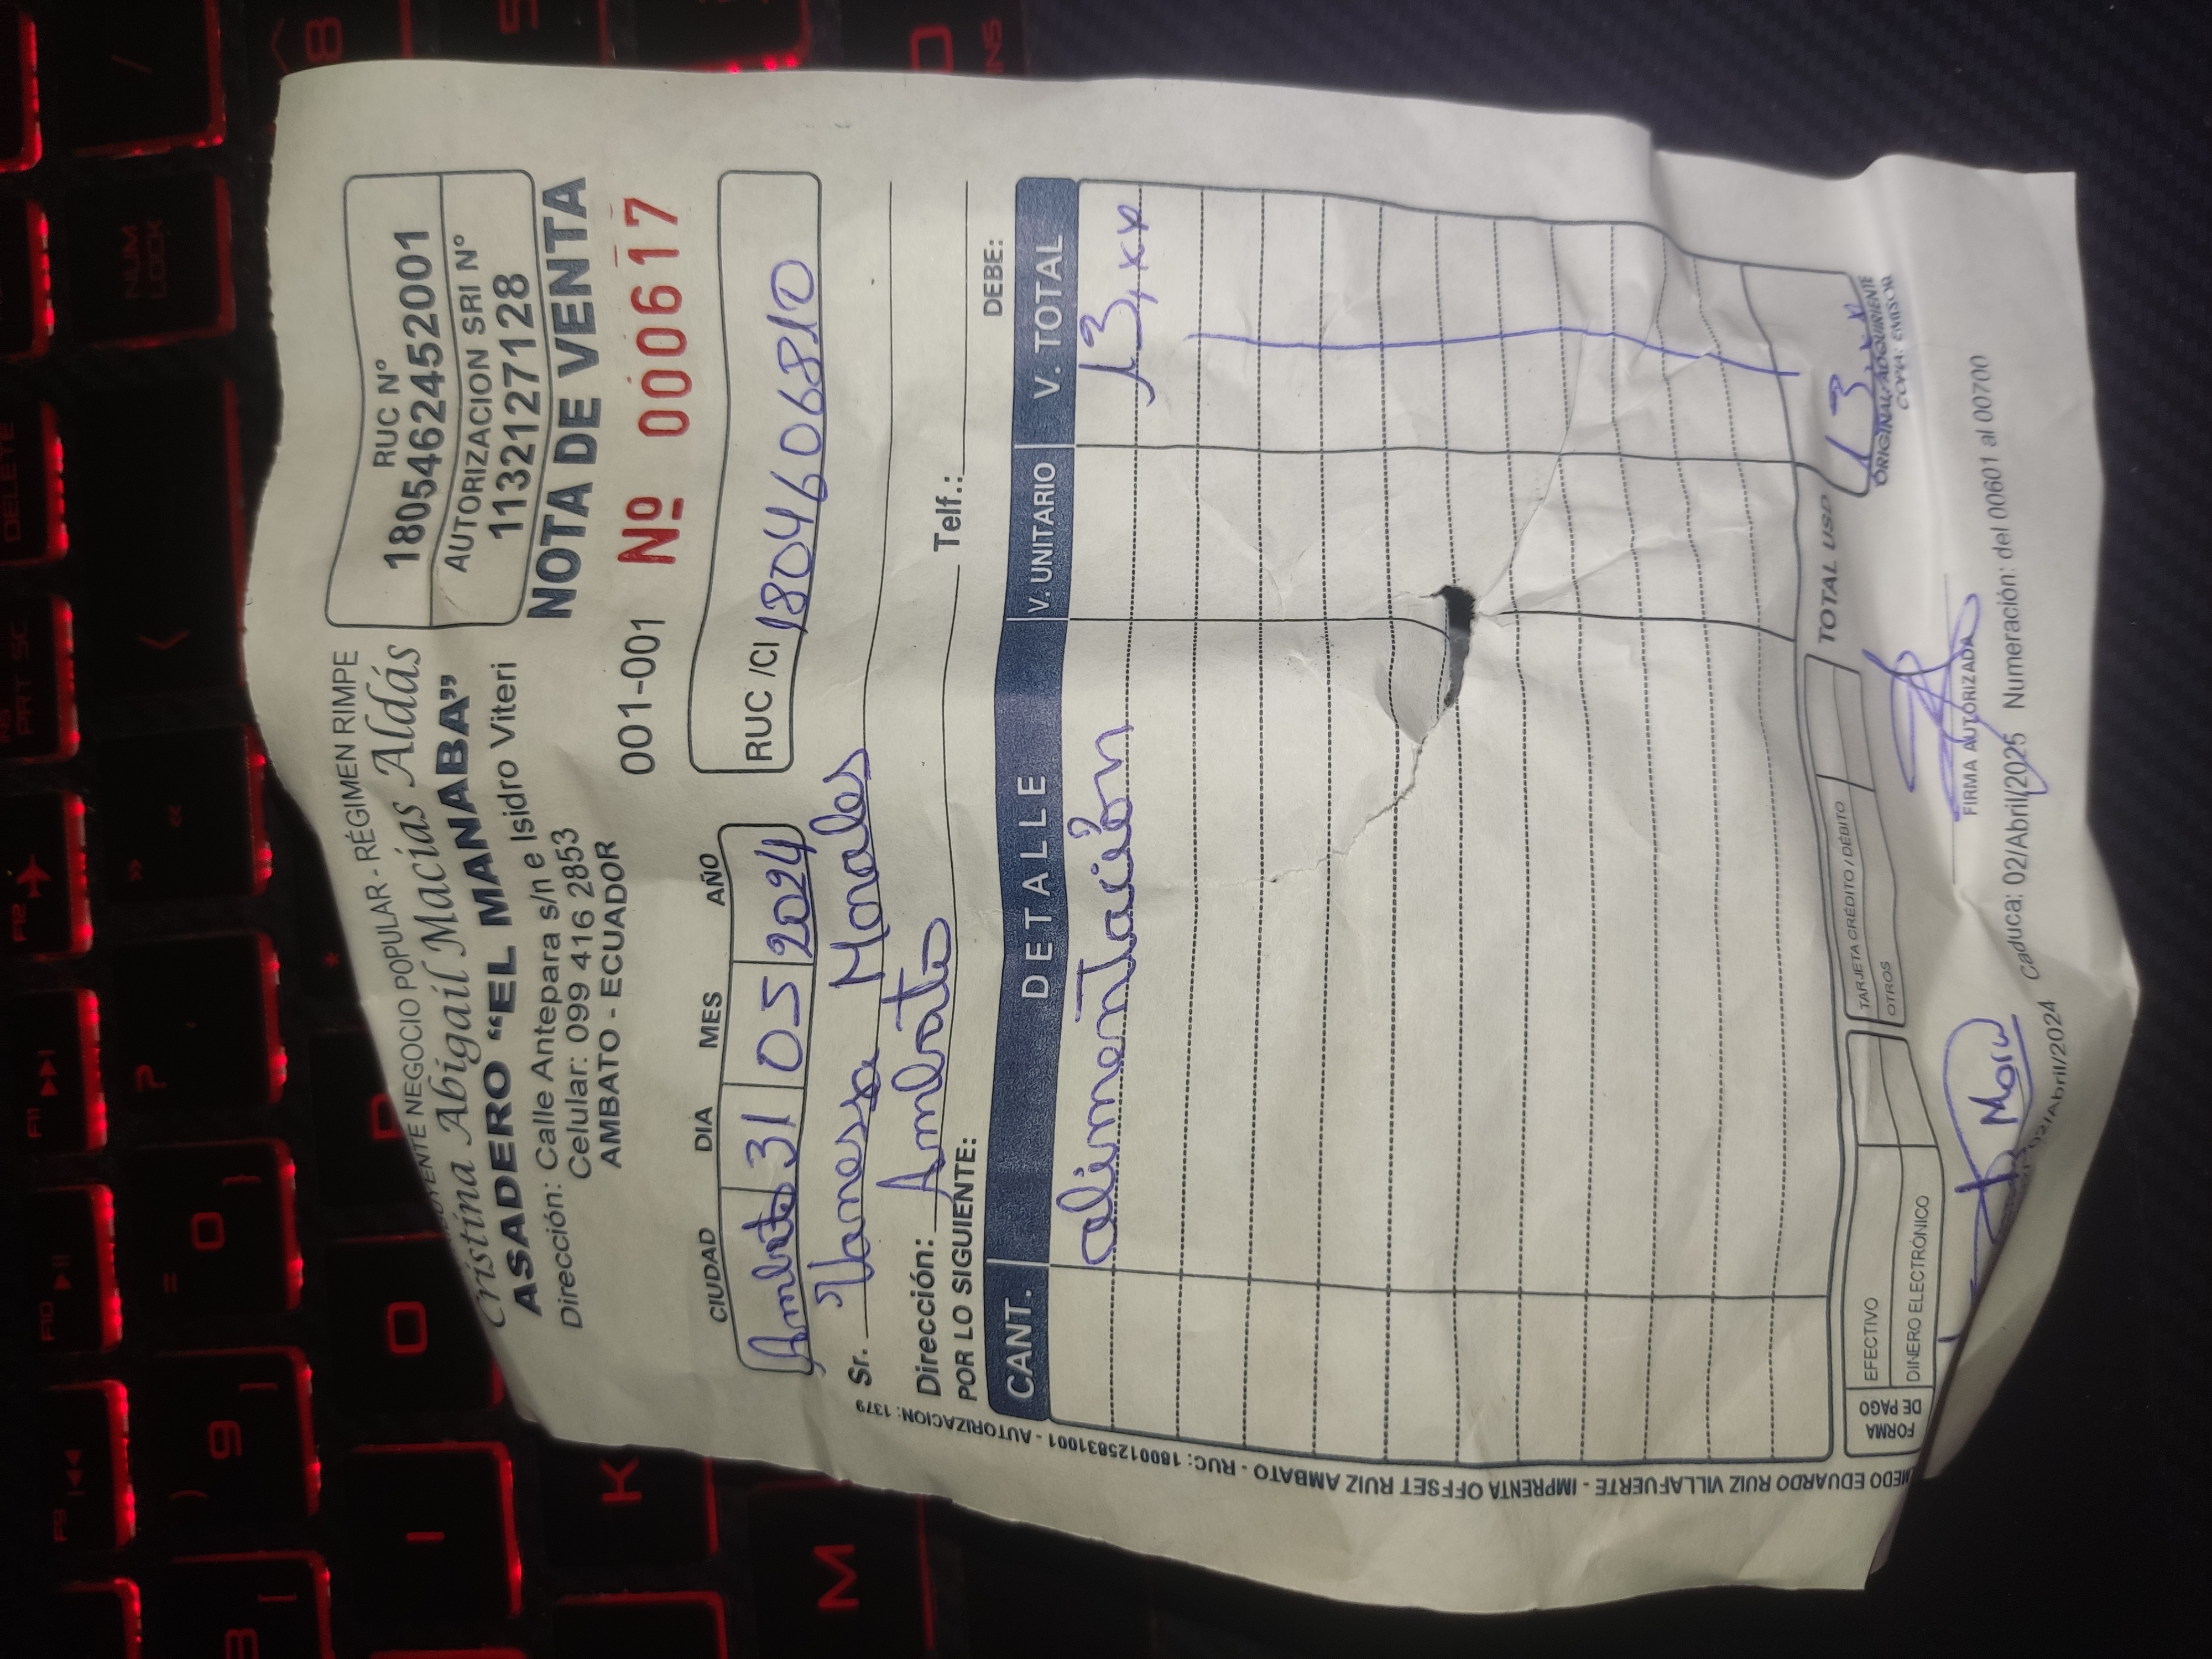 NEGOCIO POPULAR - RÉGIMEN RIMPE
Cristina Abigail Macías Aldás
ASADERO "EL MANABA"
Dirección: Calle Antepara s/n e Isidro Viteri
Celular: 099 416 2853
AMBATO - ECUADOR
RUC Nº
1805462452001
AUTORIZACION SRI Nº
1132127128
NOTA DE VENTA
001-001 Nº 000617
CIUDAD DIA MES AÑO
Ambato 31 05 2024
RUC /CI 1804606810
Sr. Vanessa Morales
Dirección: Ambato Telf.:
POR LO SIGUIENTE: DEBE:
CANT. DETALLE V. UNITARIO V. TOTAL
alimentación 13,xx
TOTAL USD 13,xx
FORMA DE PAGO
EFECTIVO
DINERO ELECTRÓNICO
TARJETA CRÉDITO / DÉBITO
OTROS
ORIGINAL: ADQUIRIENTE
COPIA: EMISOR
FIRMA AUTORIZADA
02/Abril/2024 Caduca: 02/Abril/2025 Numeración: del 00601 al 00700
EDUARDO RUIZ VILLAFUERTE - IMPRENTA OFFSET RUIZ AMBATO - RUC: 1800125831001 - AUTORIZACION: 1379
F9
F10
F11
F12
INS
PRT SC
DELETE
NUM
LOCK
/
9
0
?
8
I
O
K
M